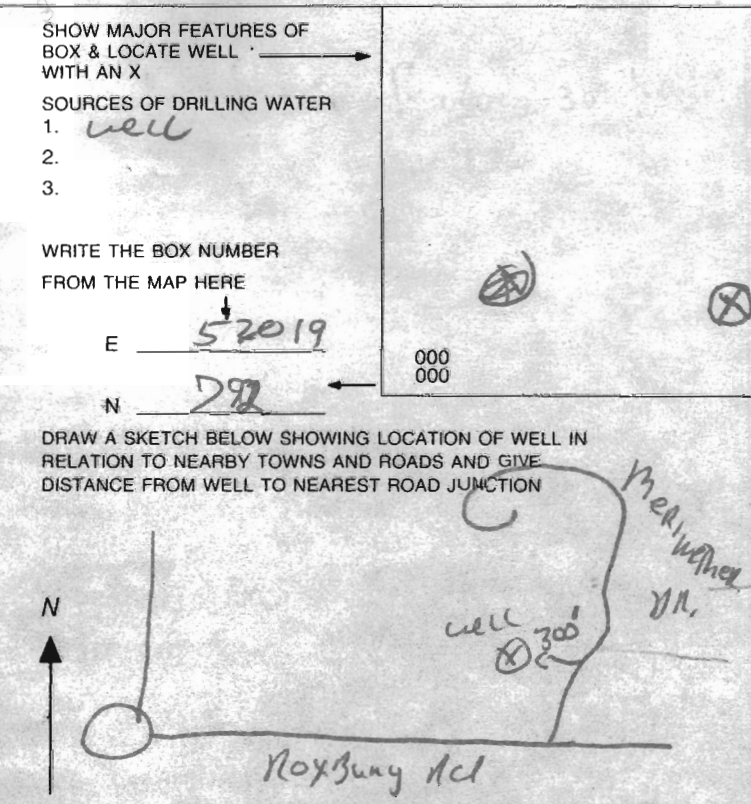 SHOW MAJOR FEATURES OF
BOX & LOCATE WELL
WITH AN X
SOURCES OF DRILLING WATER
1. well
2.
3.
WRITE THE BOX NUMBER
FROM THE MAP HERE
E 52019
N 792
000
000
DRAW A SKETCH BELOW SHOWING LOCATION OF WELL IN
RELATION TO NEARBY TOWNS AND ROADS AND GIVE
DISTANCE FROM WELL TO NEAREST ROAD JUNCTION
Meriwether
DR.
N
well 300'
X
Roxbury Rd